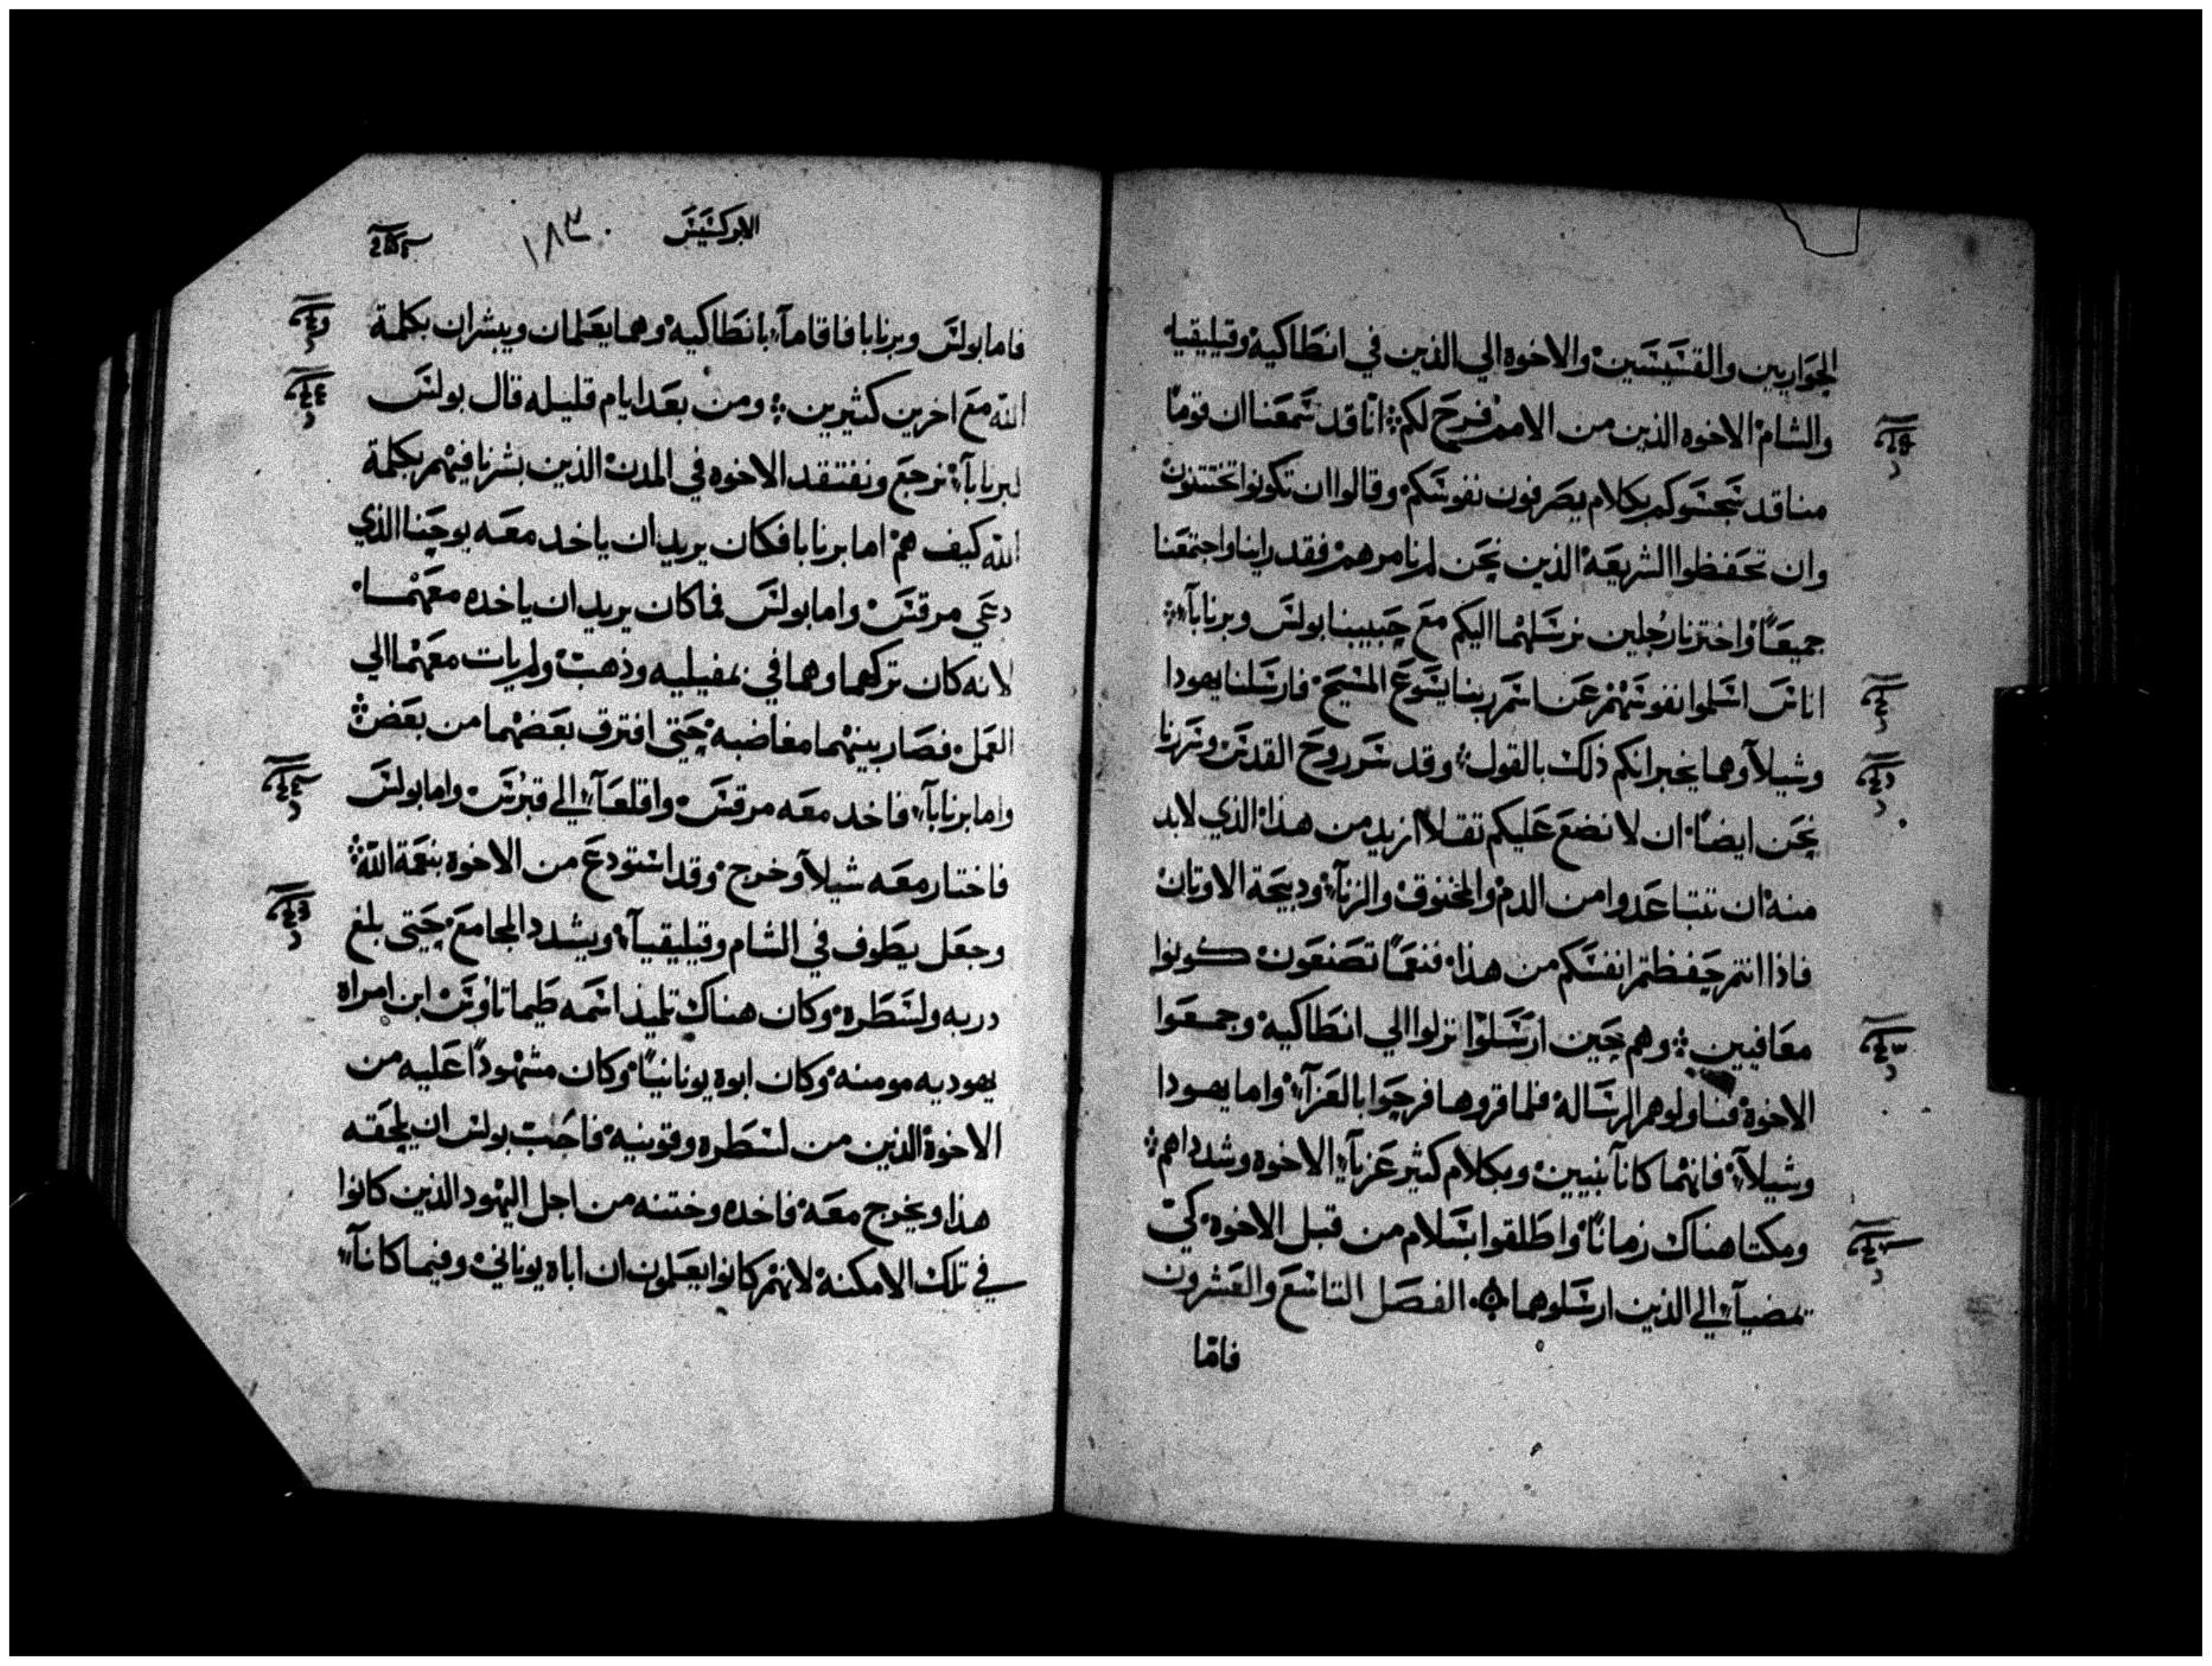 الحواريين والقسيسين والاخوه الي الذين في انطاكيه وقيليقيا
والشام الاخوه الذين من الامم فرح لكم انا قد سمعنا ان قوما
منا قد سجسوكم بكلام يصرفون نفوسكم وقالوا ان تكونوا تختتنون
وان تحفظوا الشريعه الذين نحن لم نامرهم فقد راينا واجتمعنا
جميعا واخترنا رجلين نرسلهما اليكم مع حبيبينا بولس وبرنابا
اناس اسلموا نفوسهم عن اسم ربنا يسوع المسيح فارسلنا يهودا
وشيلا وهما يخبرانكم ذلك بالقول وقد سر روح القدس وسررنا
نحن ايضا ان لا نضع عليكم تقلا ازيد من هذا الذي لابد
منه ان تتباعدوا من الدم والمخنوق والزنا ودبيحة الاوتان
فاذا انتم حفظتم انفسكم من هذا فنعما تصنعون كونوا
معافيين وهم حين ارسلوا نزلوا الي انطاكيه وجمعوا
الاخوة فناولوهم الرساله فلما قروها فرحوا بالعزا واما يهودا
وشيلا فانهما كانا نبيين وبكلام كثير عزيا الاخوه وشدداهم
ومكتا هناك زمانا واطلقوا بسلام من قبل الاخوه كي
تمضيا الي الذين ارسلوهما الفصل التاسع والعشرون
فاما
الابركسيس ١٨٣
فاما بولس وبرنابا فاقاما بانطاكيه وهما يعلمان ويبشران بكلمة
الله مع اخرين كثيرين ومن بعد ايام قليله قال بولس
لبرنابا نرجع ونفتقد الاخوه في المدن الذين بشرنا فيهم بكلمة
الله كيف هم اما برنابا فكان يريد ان ياخد معه يوحنا الذي
دعي مرقس واما بولس فما كان يريد ان ياخده معهما
لانه كان تركهما وهما في بمفيليه وذهب ولم يات معهما الي
العمل فصار بينهما مغاضبه حتي افترق بعضهما من بعض
واما برنابا فاخد معه مرقس واقلعا الي قبرس واما بولس
فاختار معه شيلا وخرج وقد استودع من الاخوة بنعمة الله
وجعل يطوف في الشام وقيليقيا ويشدد المجامع حتي بلغ
دربه ولسطره وكان هناك تلميذ اسمه طيماتاوس ابن امراه
يهوديه مومنه وكان ابوه يونانيا وكان مشهودا عليه من
الاخوة الذين من لسطره وقونيه فاحب بولس ان يلحقه
هذا ويخرج معه فاخده وختنه من اجل اليهود الذين كانوا
في تلك الامكنة لانهم كانوا يعلمون ان اباه يوناني وفيما كانا